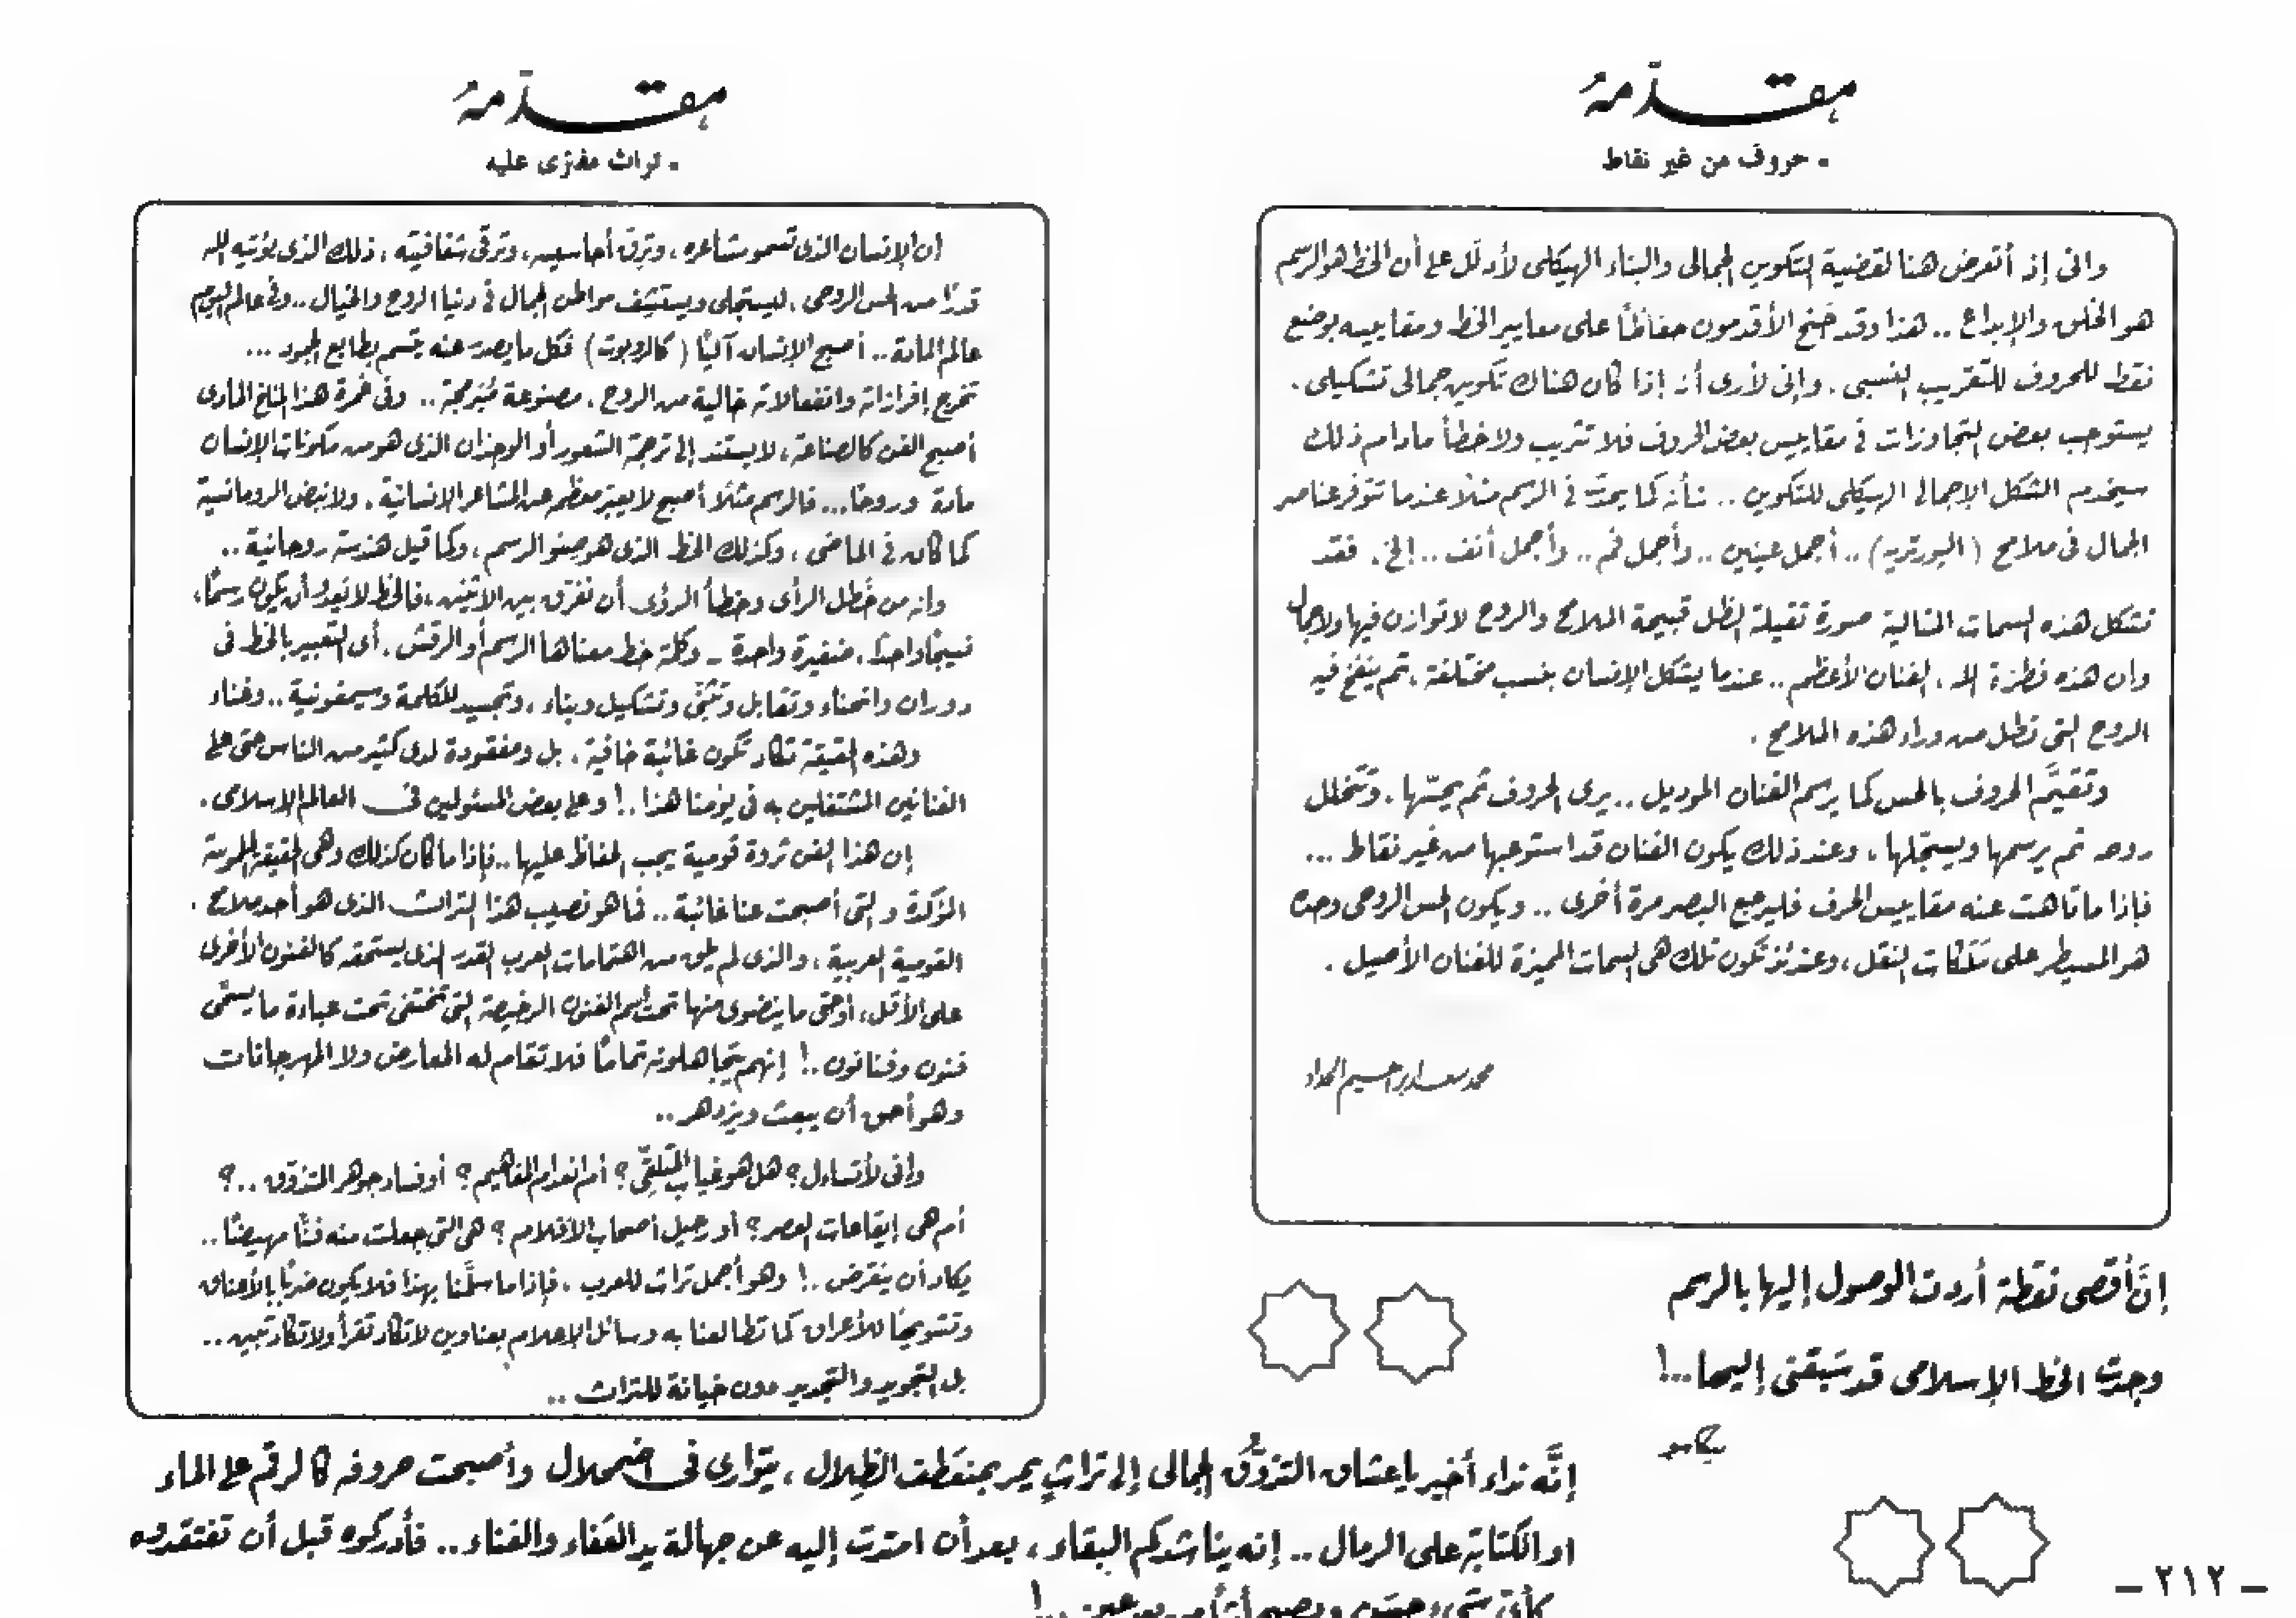 مقدمة
- حروف من غير نقاط
وانى إذ أتعرض هنا لقضية التكوين الجمالى والبناء الهيكلى لأدلل على أن الخط هو الرسم
هو الخلق والإبداع .. هذا وقد جَنح الأقدمون حفاظًا على معايير الخط ومقاييسه بوضع
نقط للحروف للتقريب النسبى . وإنى لأرى أنه إذا كان هناك تكوين جمالى تشكيلى .
يستوجب بعض التجاوزات فى مقاييس بعض الحروف فلا تثريب ولا خطأ مادام ذلك
سيخدم الشكل الإجمالى الهيكلى للتكوين .. شأنه كما يحدث فى الرسم مثلًا عندما تتوفر عناصر
الجمال فى ملامح (البورتريه) .. أجمل عينين .. وأجمل فم .. وأجمل أنف .. إلخ . فقد
تتشكل هذه السمات المثالية صورة ثقيلة الظل قبيحة الملامح والروح لا توازن فيها ولا جمال
وان هذه فطرة الله . الفنان الأعظم .. عندما يشكل الإنسان بنسب مختلفة . ثم ينفخ فيه
الروح التى تطل من وراء هذه الملامح .
وتقيَّم الحروف بالحس كما يرسم الفنان الموديل .. يرى الحروف ثم يحسّها . وتتخلل
روحه ثم يرسمها ويسجلها . وعند ذلك يكون الفنان قد استوعبها من غير نقاط ...
فإذا ما تاهت عنه مقاييس الحرف فليرجع البصر مرة أخرى .. ويكون الحس الروحى وحده
هو المسيطر على ملكات النقل ، وعندئذ تكون تلك هى السمات المميزة للفنان الأصيل .
محمد سعد ابراهيم الحداد
إنَّ أقصى نقطة أردت الوصول إليها بالرسم
وجدت الخط الإسلامى قد سَبقنى إليها ...!
بيكاسو
مقدمة
- تراث مفترى عليه
أن الإنسان الذى تسمو مشاعره ، وترق أحاسيسه ، وترقى شفافيته ، ذلك الذى يؤتيه الله
قدرًا من الحس الروحى ، ليستجلى ويستشف مواطن الجمال فى دنيا الروح والخيال .. وفى عالم اليوم
عالم المادة .. أصبح الإنسان آليًا (كالروبوت) فكل ما يصدر عنه يتسم بطابع الجمود ...
تخرج إفرازاته وانفعالاته خالية من الروح . مصنوعة مُبَرمجة .. وفى غمرة هذا المناخ المادى
أصبح الفن كالصناعة ، لا يستند إلى ترجمة الشعور أو الوجدان الذى هو من مكونات الإنسان
مادة وروحًا ... فالرسم مثلًا أصبح لا يعبر معظمه عن المشاعر الإنسانية . ولا نبض الرومانسية
كما كان فى الماضى ، وكذلك الخط الذى هو صنو الرسم ، وكما قيل هندسة روحانية ..
وانه من خَطل الرأى وخطأ الرؤى أن نفرق بين الاثنين ، فالخط لا يعدو أن يكون رسمًا ،
نسيجًا واحدًا . ضفيرة واحدة - وكلمة خط معناها الرسم أو الرقش . أى التعبير بالخط فى
دوران وانحناء وتقابل وتثنّى وتشكيل وبناء ، وتجسيد للكلمة وسيمفونية .. وغناء
وهذه الحقيقة تكاد تكون غائبة خافية . بل ومفقودة لدى كثير من الناس حتى على
الفنانين المشتغلين به فى يومنا هذا .! وعلى بعض المسئولين فى العالم الإسلامى .
إن هذا الفن ثروة قومية يجب الحفاظ عليها .. فإذا ما كان كذلك وهى الحقيقة المرة
المؤكدة والتى أصبحت عنا غائبة .. فما هو نصيب هذا التراث الذى هو أحد ملامح .
القومية العربية ، والذى لم يلق من اهتمامات العرب القدر الذى يستحقه كالفنون الأخرى
على الأقل ، أو حتى ما ينضوى منها تحت اسم الفنون الرخيصة التى تختفى تحت عباءة ما يسمى
فنون وفنانون .! إنهم يتجاهلونه تمامًا فلا تقام له المعارض ولا المهرجانات
وهو أحق أن يبعث ويزدهر ..
وإنى لأتساءل ؟ هل هو غياب المتلقِّى ؟ أم انعدام المفاهيم ؟ أو فساد جوهر التذوق ..؟
أم هى إيقاعات العصر ؟ أو رحيل أصحاب الأقلام ؟ هى التى جعلت منه فنًّا مهيضًا ..
يكاد أن ينقرض .! وهو أجمل تراث للعرب . فإذا ما سلَّمنا بهذا فلا يكون ضربًا بالأعناق
وتشويهًا للأعراق كما تطالعنا به وسائل الإعلام بعناوين لا تكاد تقرأ ولا تكاد تبين ..
بل التجويد والتجديد دون خيانة للتراث ..
إنَّه نداء أخير يا عشاق التذوُّق الجمالى إلى تراثٍ يمر بمنعَطف الظِلال ، يتوارى فى اضمحلال وأصبحت حروفه كالرقم على الماء
او الكتابة على الرمال .. إنه يناشدكم البقاء ، بعد أن امتدت إليه عن جهالة يد العَفاء والفناء .. فأدركوه قبل أن تفتقدوه
- ٢١٢ -